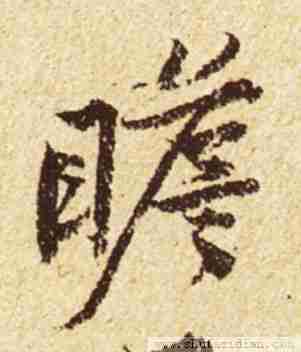 瞻
www.shufazidian.com